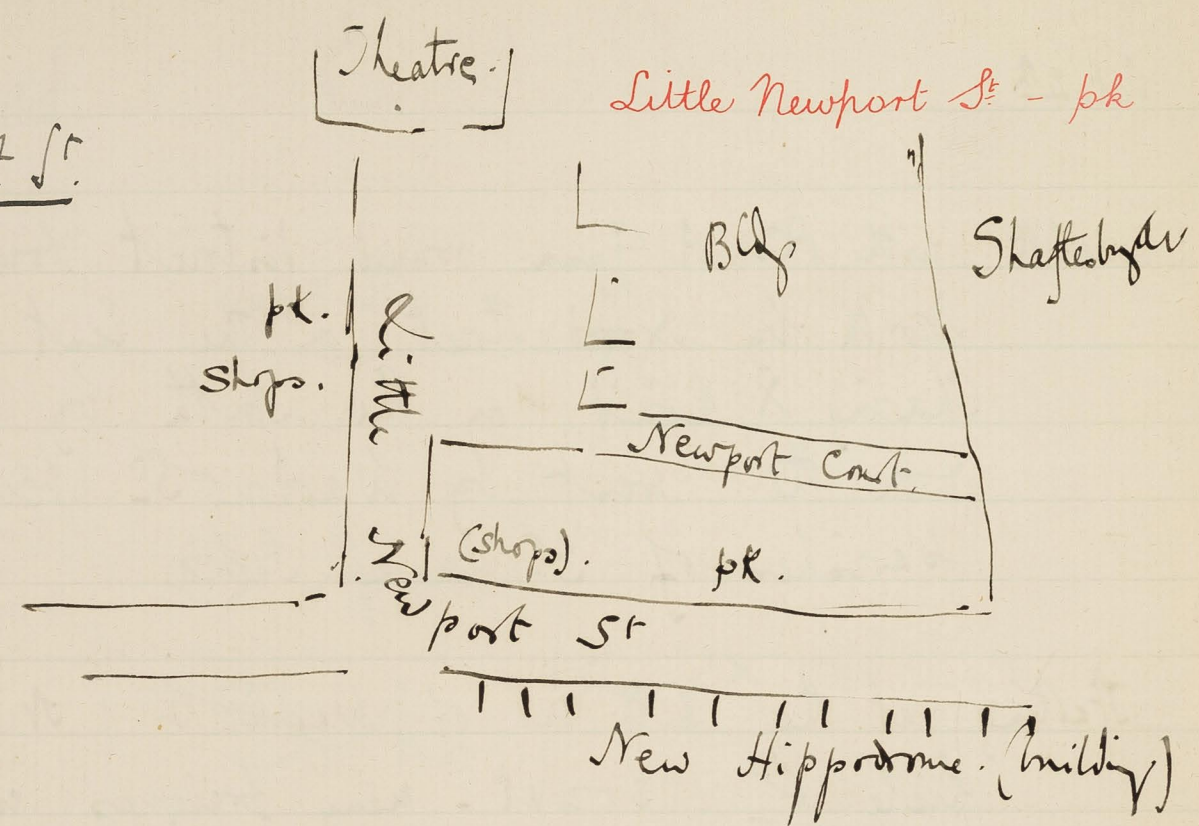 Theatre.
Little Newport St. - pk
St.
Bldg
Shaftesby Av
pk.
Shops.
Little
Newport Court.
(shops).
pk.
New
port St
New Hippodrome. (building)